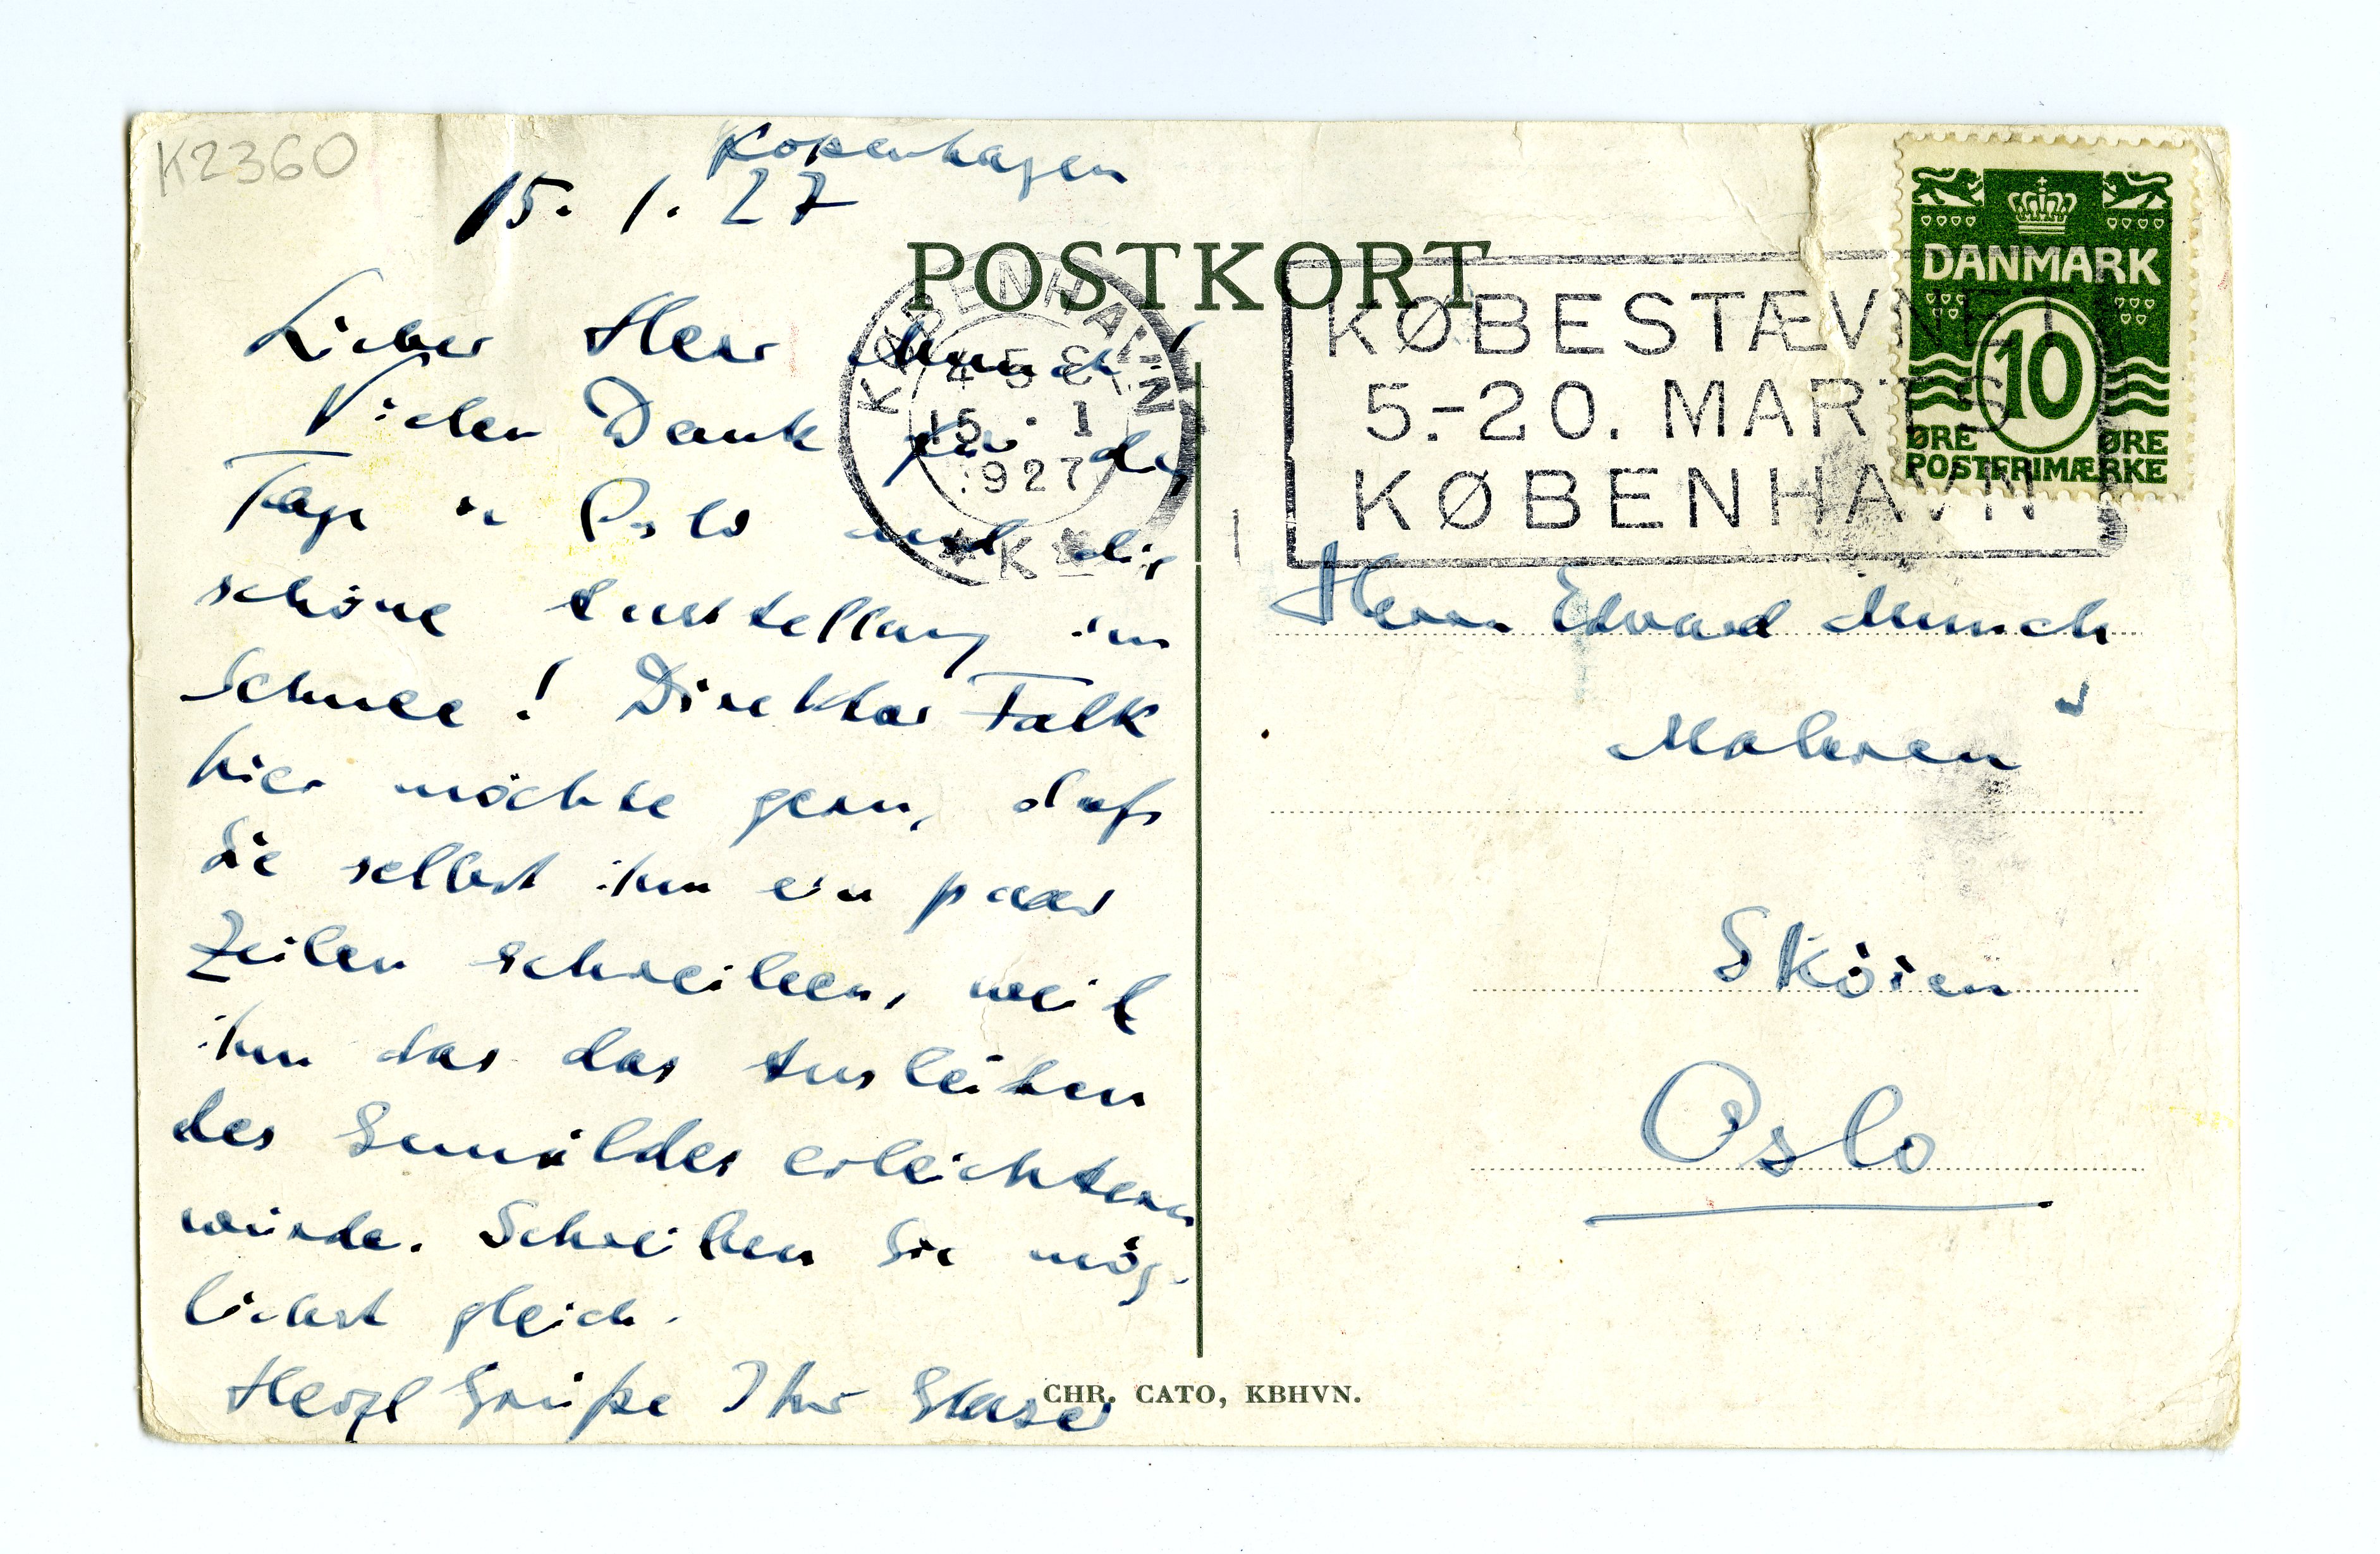 K2360
Kopenhagen
15. 1. 27
POSTKORT
Lieber Herr Munch!
Vielen Dank für die
Tage in Oslo und die
schöne Ausstellung im
Schnee! Direktor Falk
hier möchte gern, daß
Sie selbst ihm ein paar
Zeilen schreiben, weil
ihm das das Ausleihen
des Gemäldes erleichtern
würde. Schreiben Sie mög-
lichst gleich.
Herzl Grüße Ihr Glaser
KØBENHAVN
15 · 1
1927
★ K ★
KØBESTÆVNET
5.-20. MARTS
KØBENHAVN
DANMARK
10
ØRE ØRE
POSTFRIMÆRKE
Herrn Edvard Munch
Maleren
Sköien
Oslo
CHR. CATO, KBHVN.